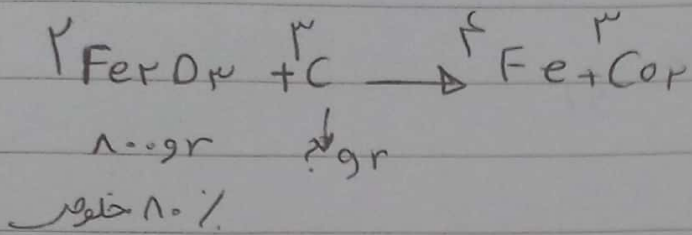 ۲Fe۲O۳ + ۳C → ۴Fe + ۳Co۲
۸۰۰gr ?gr
۸۰٪ خلوص